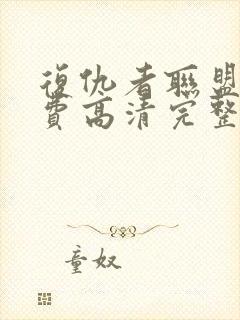 復仇者聯盟
費高清完整
童奴